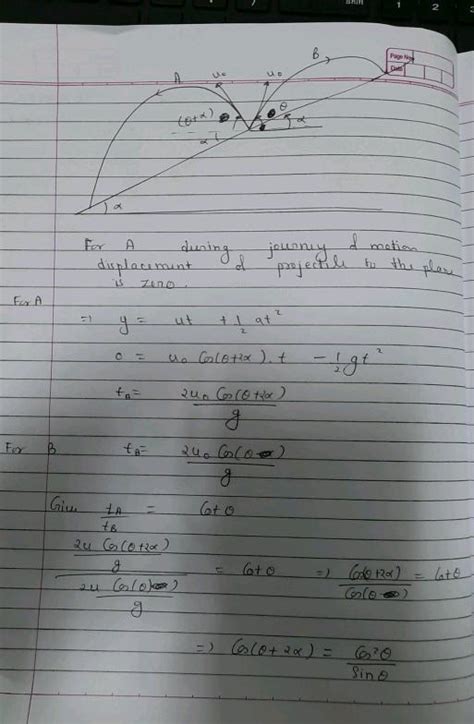 Page No.
Date
A
B
u₀
u₀
(θ+α)
θ
α
α
α
For A during journey of motion
displacement of projectile to the plane
is zero.
For A
=> y = ut + 1/2 at²
0 = u₀ Cos(θ+2α).t - 1/2 gt²
tₐ= 2u₀ Cos(θ+2α)/g
For B t_B= 2u₀ Cos(θ)/g
Given t_A/t_B = Cot θ
(2u Cos(θ+2α)/g)/(2u Cos(θ)/g) = Cot θ => Cos(θ+2α)/Cos(θ) = Cot θ
=> Cos(θ+2α) = Cos²θ/Sinθ